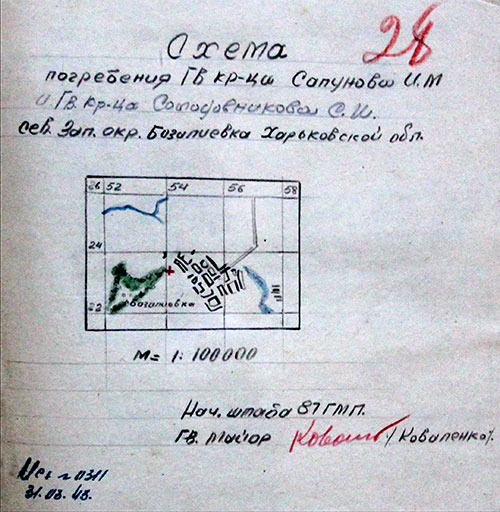 Схема
28
погребения ГВ кр-ца Сапунова И.М
и ГВ. кр-ца Солодовникова С.И.
сев. Зап. окр. Богалиевка Харьковской обл.
26 52 54 56 58
24
22 Богатиевка
М= 1:100000
Нач. штаба 87 ГМП.
ГВ. Майор /Коваленко/.
0311
31.03.43.